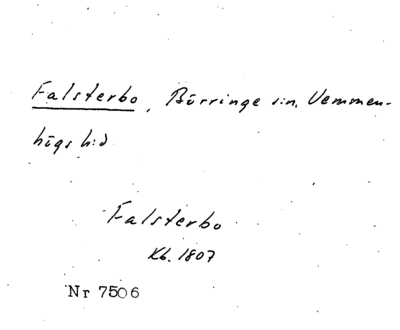 Falsterbo, Börringe s:n, Vemmen-
högs h:d
Falsterbo
Kb. 1807
Nr 7506